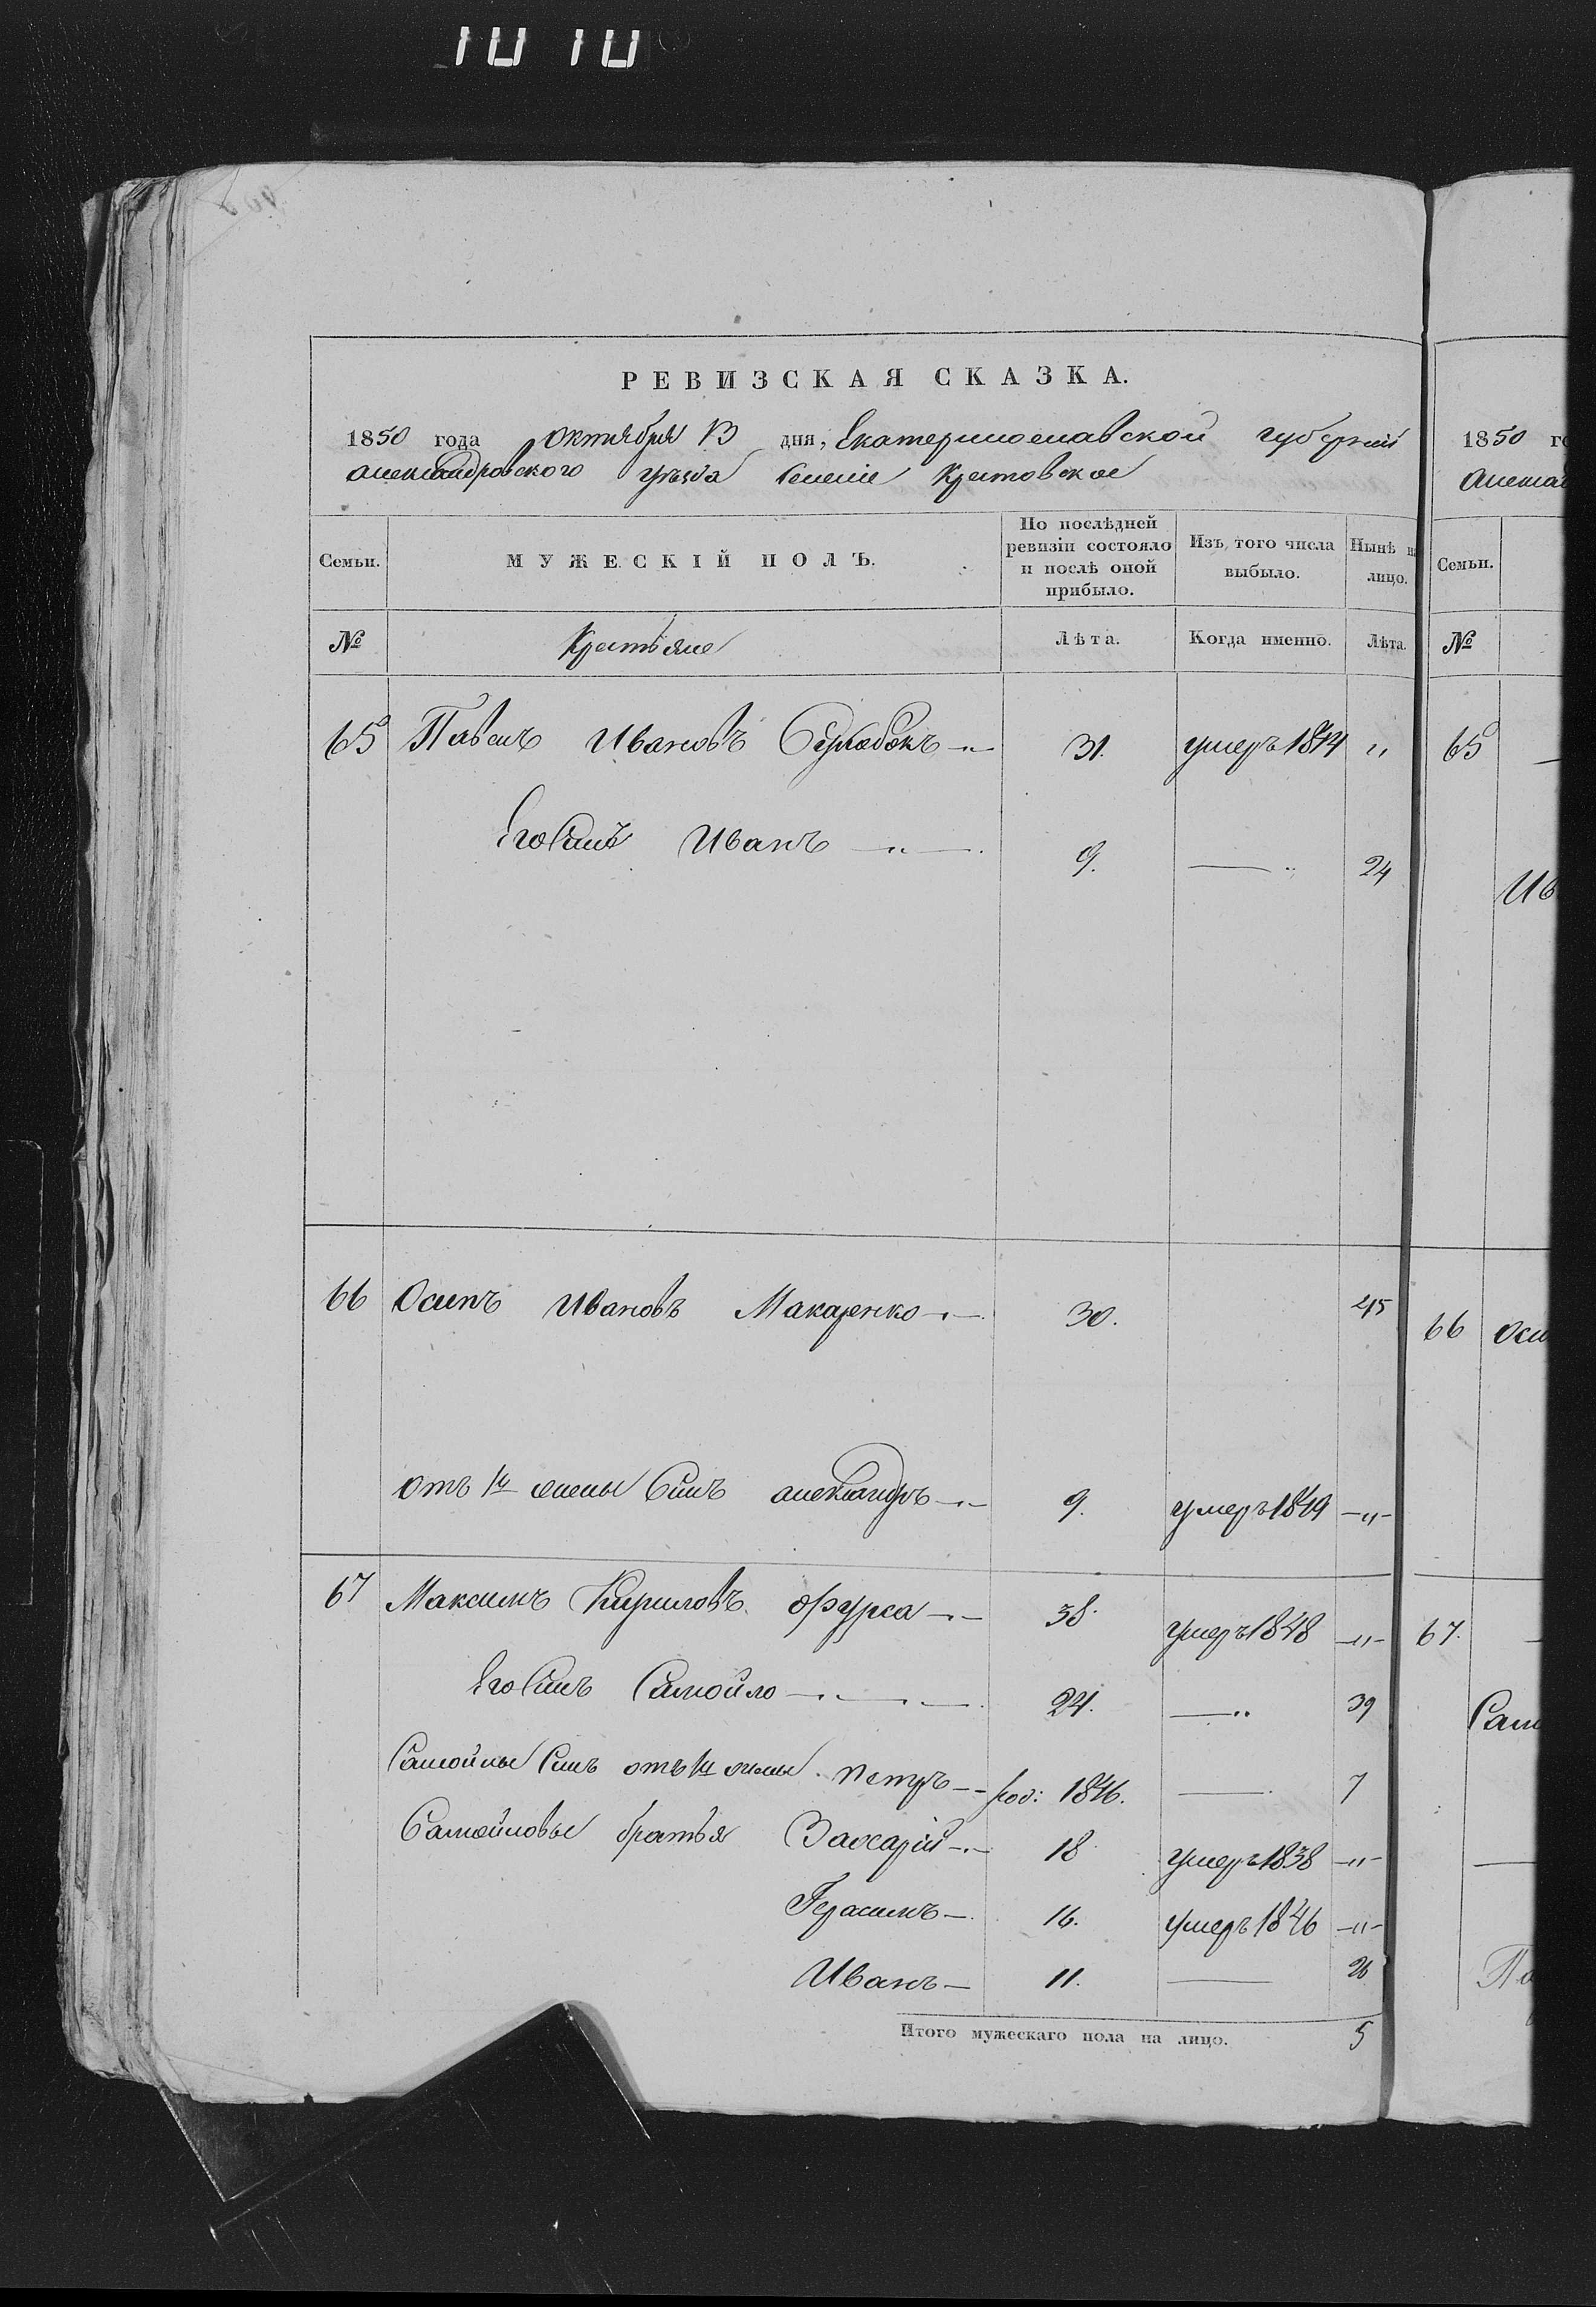 1010
РЕВИЗСКАЯ СКАЗКА.
1850 года Октября 13 дня, Екатеринославской губернии
Александровского уезда Селеніе Крестовское
Семьи.
МУЖЕСКІЙ ПОЛЪ.
По послѣдней ревизіи состояло и послѣ оной прибыло.
Изъ того числа выбыло.
Нынѣ на лицо.
№ Крестьяне Лѣта. Когда именно. Лѣта.
65 Павелъ Ивановъ 31. умеръ 1844 "
Его Сынъ Иванъ 9. — 24
66 Осипъ Ивановъ Макаренко 30. 45
отъ 1й жены Сынъ Александръ 9. умеръ 1849 "
67 Максимъ Кириловъ Фурса 38. умеръ 1848 "
Его Сынъ Самойло 24. — 39
Самойлы Сынъ отъ 1й жены Петръ Род: 1846. — 7
Самойловы братья Захарій 18 умеръ 1838 "
Герасимъ 16. умеръ 1846 "
Иванъ 11. — 26
Итого мужескаго пола на лицо. 5
1850 го
Алексан
Семьи.
№
65
Ив
66 Оси
67.
Сам